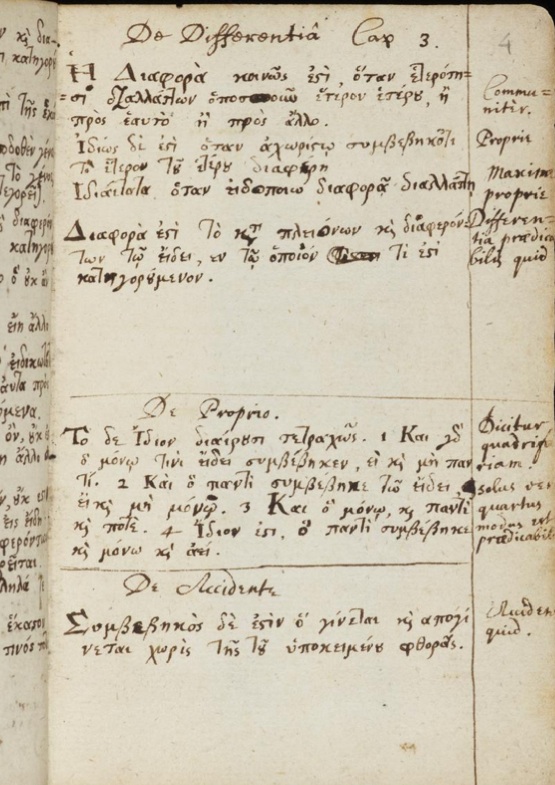 De Differentiâ Cap 3.
4
Ἡ Διαφορὰ κοινῶς ἐςὶ, ὅταν ἑτερότη-
=σι
ἕτερον ἑτέρου, ἢ
πρὸς ἑαυτὸ ἢ πρὸς ἄλλο.
Commu-
nitèr.
Ἰδίως δέ ἐςι ὅταν ἀχωρίςῳ συμβεβηκότι
τὸ ἕτερον τοῦ ἑτέρου διαφέρῃ
Propriè
Ἰδιαίτατα ὅταν εἰδοποιῷ διαφορᾷ διαλλάττῃ
Maxime
propriè
Διαφορά ἐςι τὸ κτ πλειόνων κὶ διαφερόν-
των τῷ εἴδει, ἐν τῷ ὁποῖόν τι ἐςὶ
κατηγορούμενον.
Differen-
tia prædica
bilis quid
De Proprio.
Τὸ δὲ Ἴδιον διαιροῦσι τετραχῶς. 1 Καὶ γὸ
ὃ μόνῳ τινὶ εἴδει συμβέβηκεν, εἰ κὶ μὴ παν
τί. 2 Καὶ ὃ παντὶ συμβέβηκε τῷ εἴδει
εἰ κὶ μὴ μόνῳ. 3 Καὶ ὃ μόνῳ, κὶ παντὶ
κὶ ποτέ. 4 Ἴδιον ἐςι, ὃ παντὶ συμβέβηκε
κὶ μόνῳ κὶ ἀεί.
Dicitur
quadrifa
riam.
solus ver
quartus
modus est
prædicabil
De Accidente
Συμβεβηκὸς δέ ἐςιν ὃ γίνεται κὶ ἀπογί
νεται χωρὶς τῆς τοῦ ὑποκειμένου φθορᾶς.
Acciden
quid.